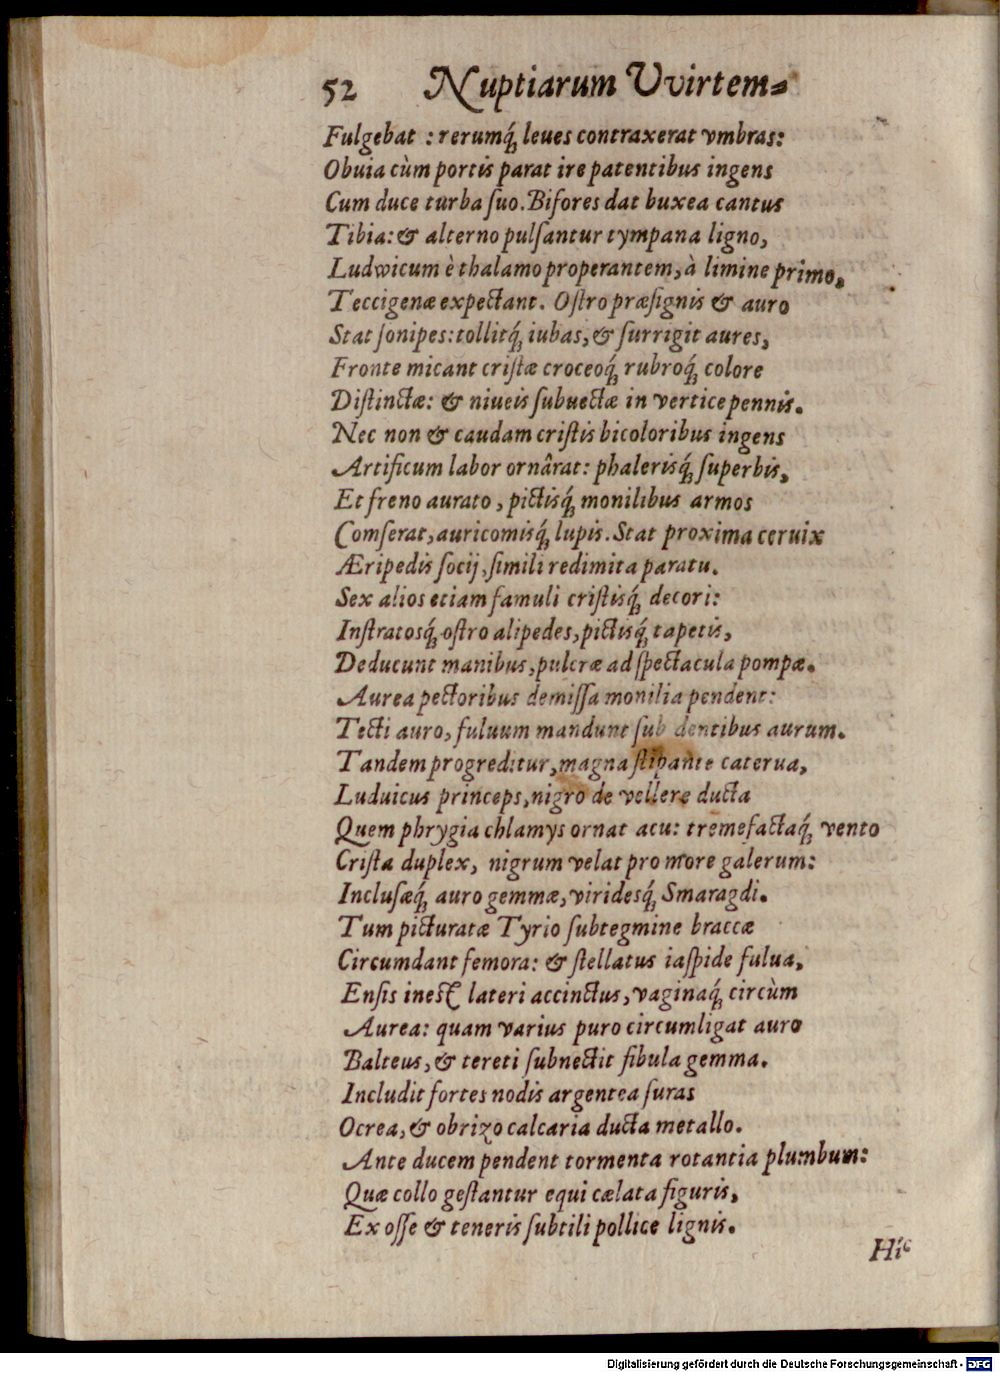 52 Nuptiarum Vvirtem-
Fulgebat : rerumq́; leues contraxerat vmbras:
Obuia cùm portis parat ire patentibus ingens
Cum duce turba ſuo. Bifores dat buxea cantus
Tibia: & alterno pulſantur tympana ligno,
Ludwicum è thalamo properantem, à limine primo,
Teccigenæ expectant. Oſtro præſignis & auro
Stat ſonipes: tollitq́; iubas, & ſurrigit aures,
Fronte micant criſtæ croceoq́; rubroq́; colore
Diſtinctæ: & niueis ſubuectæ in vertice pennis.
Nec non & caudam criſtis bicoloribus ingens
Artificum labor ornârat: phalerisq́; ſuperbis,
Et freno aurato, pictisq́; monilibus armos
Comſerat, auricomisq́; lupis. Stat proxima ceruix
Æripedis ſocij, ſimili redimita paratu.
Sex alios etiam famuli criſtisq́; decori:
Inſtratosq́; oſtro alipedes, pictisq́; tapetis,
Deducunt manibus, pulcræ ad ſpectacula pompæ.
Aurea pectoribus demiſſa monilia pendent:
Tecti auro, fuluum mandunt ſub dentibus aurum.
Tandem progreditur, magna ſtipante caterua,
Luduicus princeps, nigro de vellere ducta
Quem phrygia chlamys ornat acu: tremefactaq́; vento
Criſta duplex, nigrum velat pro more galerum:
Incluſæq́; auro gemmæ, viridesq́; Smaragdi.
Tum picturatæ Tyrio ſubtegmine braccæ
Circumdant femora: & ſtellatus iaſpide fulua,
Enſis ineſt lateri accinctus, vaginaq́; circùm
Aurea: quam varius puro circumligat auro
Balteus, & tereti ſubnectit fibula gemma.
Includit fortes nodis argentea ſuras
Ocrea, & obrizo calcaria ducta metallo.
Ante ducem pendent tormenta rotantia plumbum:
Quæ collo geſtantur equi cælata figuris,
Ex oſſe & teneris ſubtili pollice lignis.
Hic
Digitalisierung gefördert durch die Deutsche Forschungsgemeinschaft - DFG